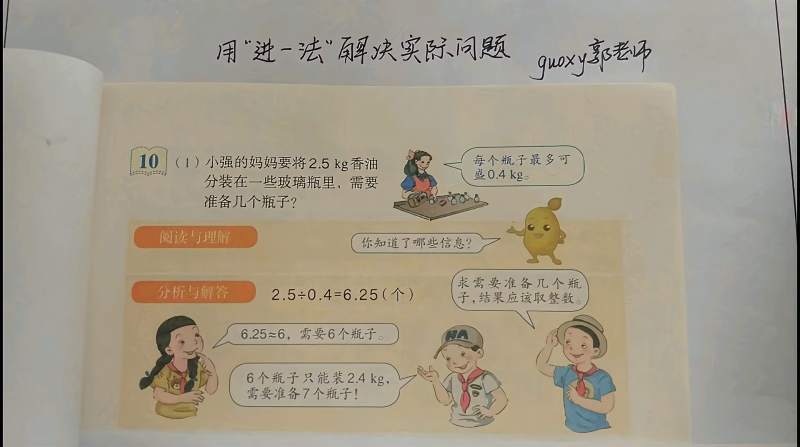 用"进一法"解决实际问题
guoxy郭老师
10
(1)小强的妈妈要将2.5 kg香油
分装在一些玻璃瓶里,需要
准备几个瓶子?
每个瓶子最多可
盛0.4 kg。
阅读与理解
你知道了哪些信息?
分析与解答
2.5÷0.4=6.25(个)
求需要准备几个瓶
子,结果应该取整数。
6.25≈6,需要6个瓶子。
6个瓶子只能装2.4 kg,
需要准备7个瓶子!
HA